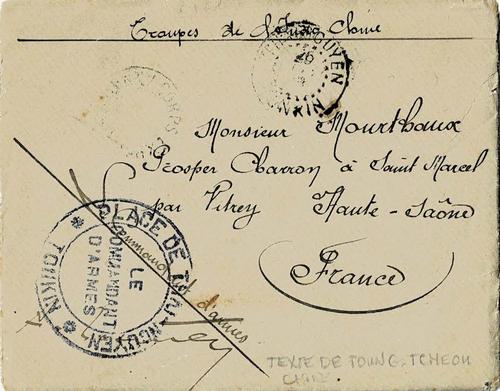 Troupes de l'Indo Chine
THAI-NGUYEN
26
TONKIN
CORPS
Monsieur Mourthaux
Prosper Charron à Saint Marcel
par Vitrey Haute-Saône
France
PLACE DE THAI-NGUYEN
LE
COMMANDANT
D'ARMES
* TONKIN *
Commandant d'armes
TEXTE DE TOUNG-TCHEOU
CHINE